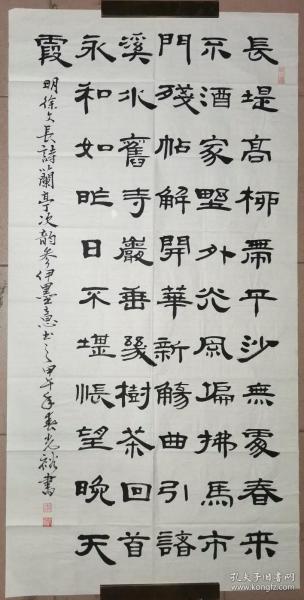 長堤高柳帶平沙無處春來
不酒家野外光風偏拂馬市
門殘帖解開華新觴曲引諸
溪水舊寺巖垂幾樹茶回首
永和如昨日不堪悵望晚天
霞
明徐文長詩蘭亭次韵參伊墨意書之甲午年春光裕書
孔夫子旧书网
www.kongfz.com